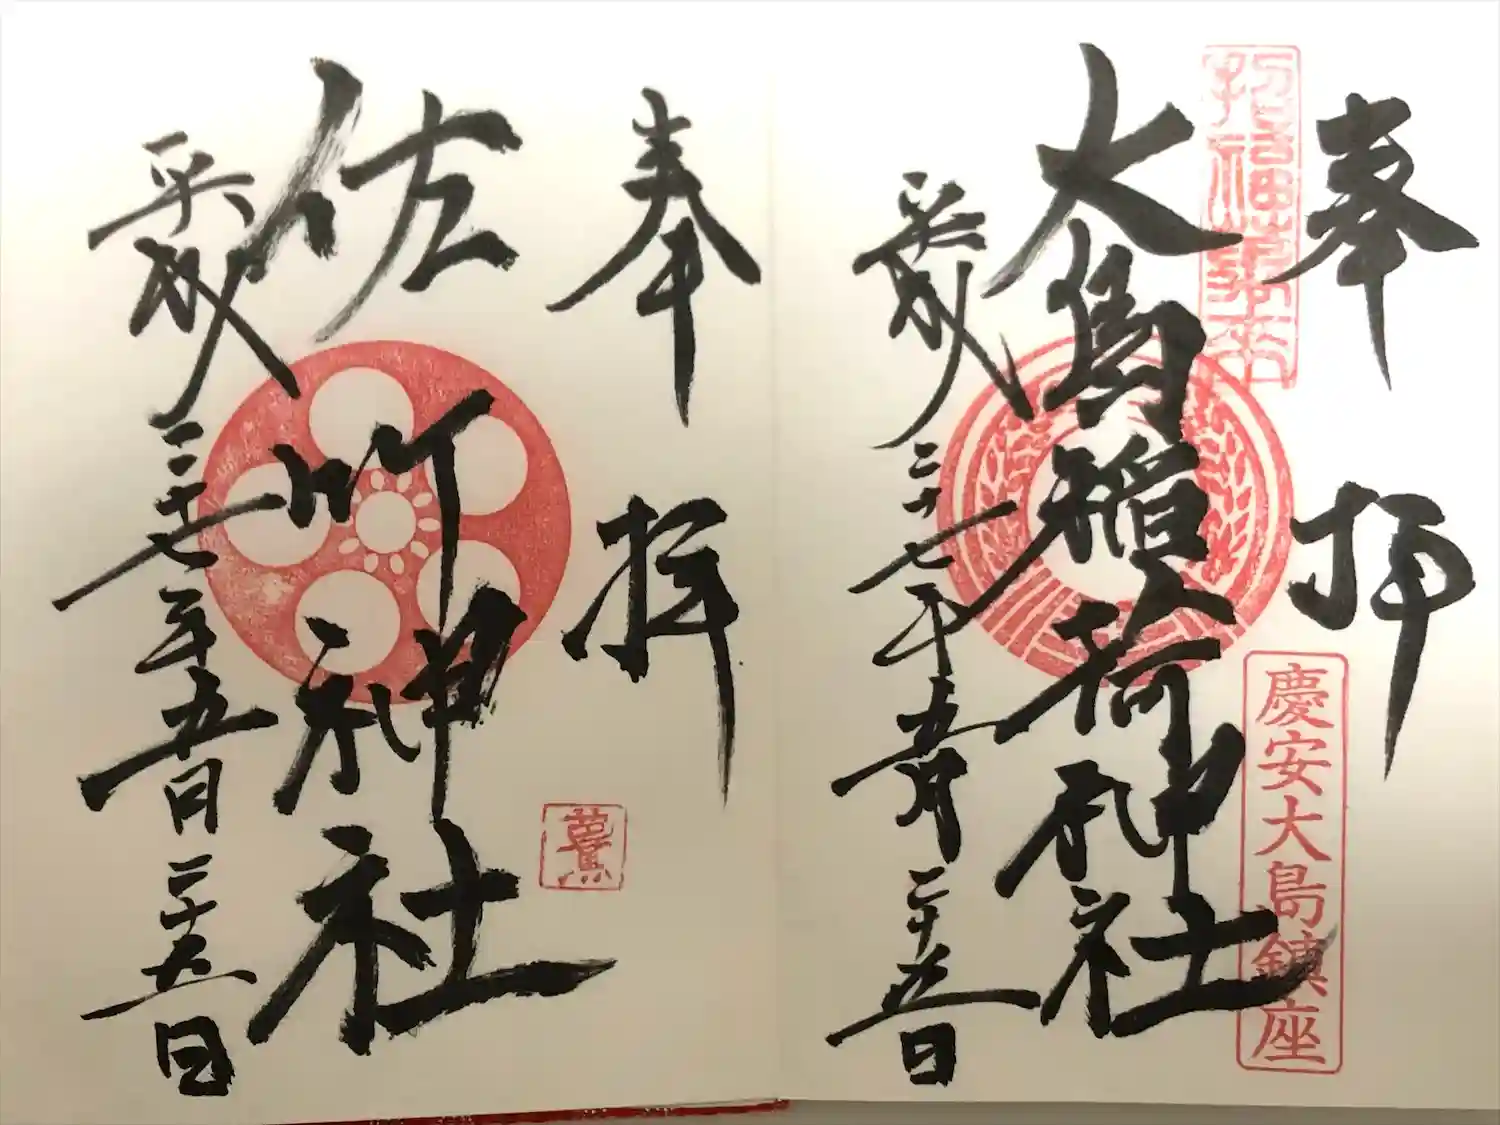 奉拝
招福萬来
大島稲荷神社
慶安大島鎮座
平成二十七年五月二十五日
奉拝
佐竹神社
平成二十七年五月二十五日